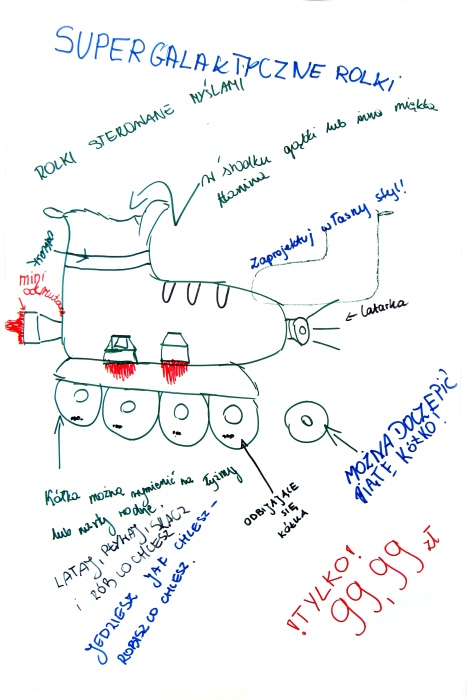 SUPERGALAKTYCZNE ROLKI
ROLKI STEROWANE MYŚLAMI
w środku gąbki lub inna miękka
tkanina
Zaprojektuj własny styl!
mini
← Latarka
MOŻNA DOCZEPIĆ
PIĄTE KÓŁKO!
Kółka można wymienić na łyżwy
lub narty wodne!
ODBIJAJĄCE
SIĘ
KÓŁKA
LATAJ, PŁYWAJ, SKACZ
I RÓB CO CHCESZ!
JEDZIESZ JAK CHCESZ –
ROBISZ CO CHCESZ!
!TYLKO!
99,99 zł